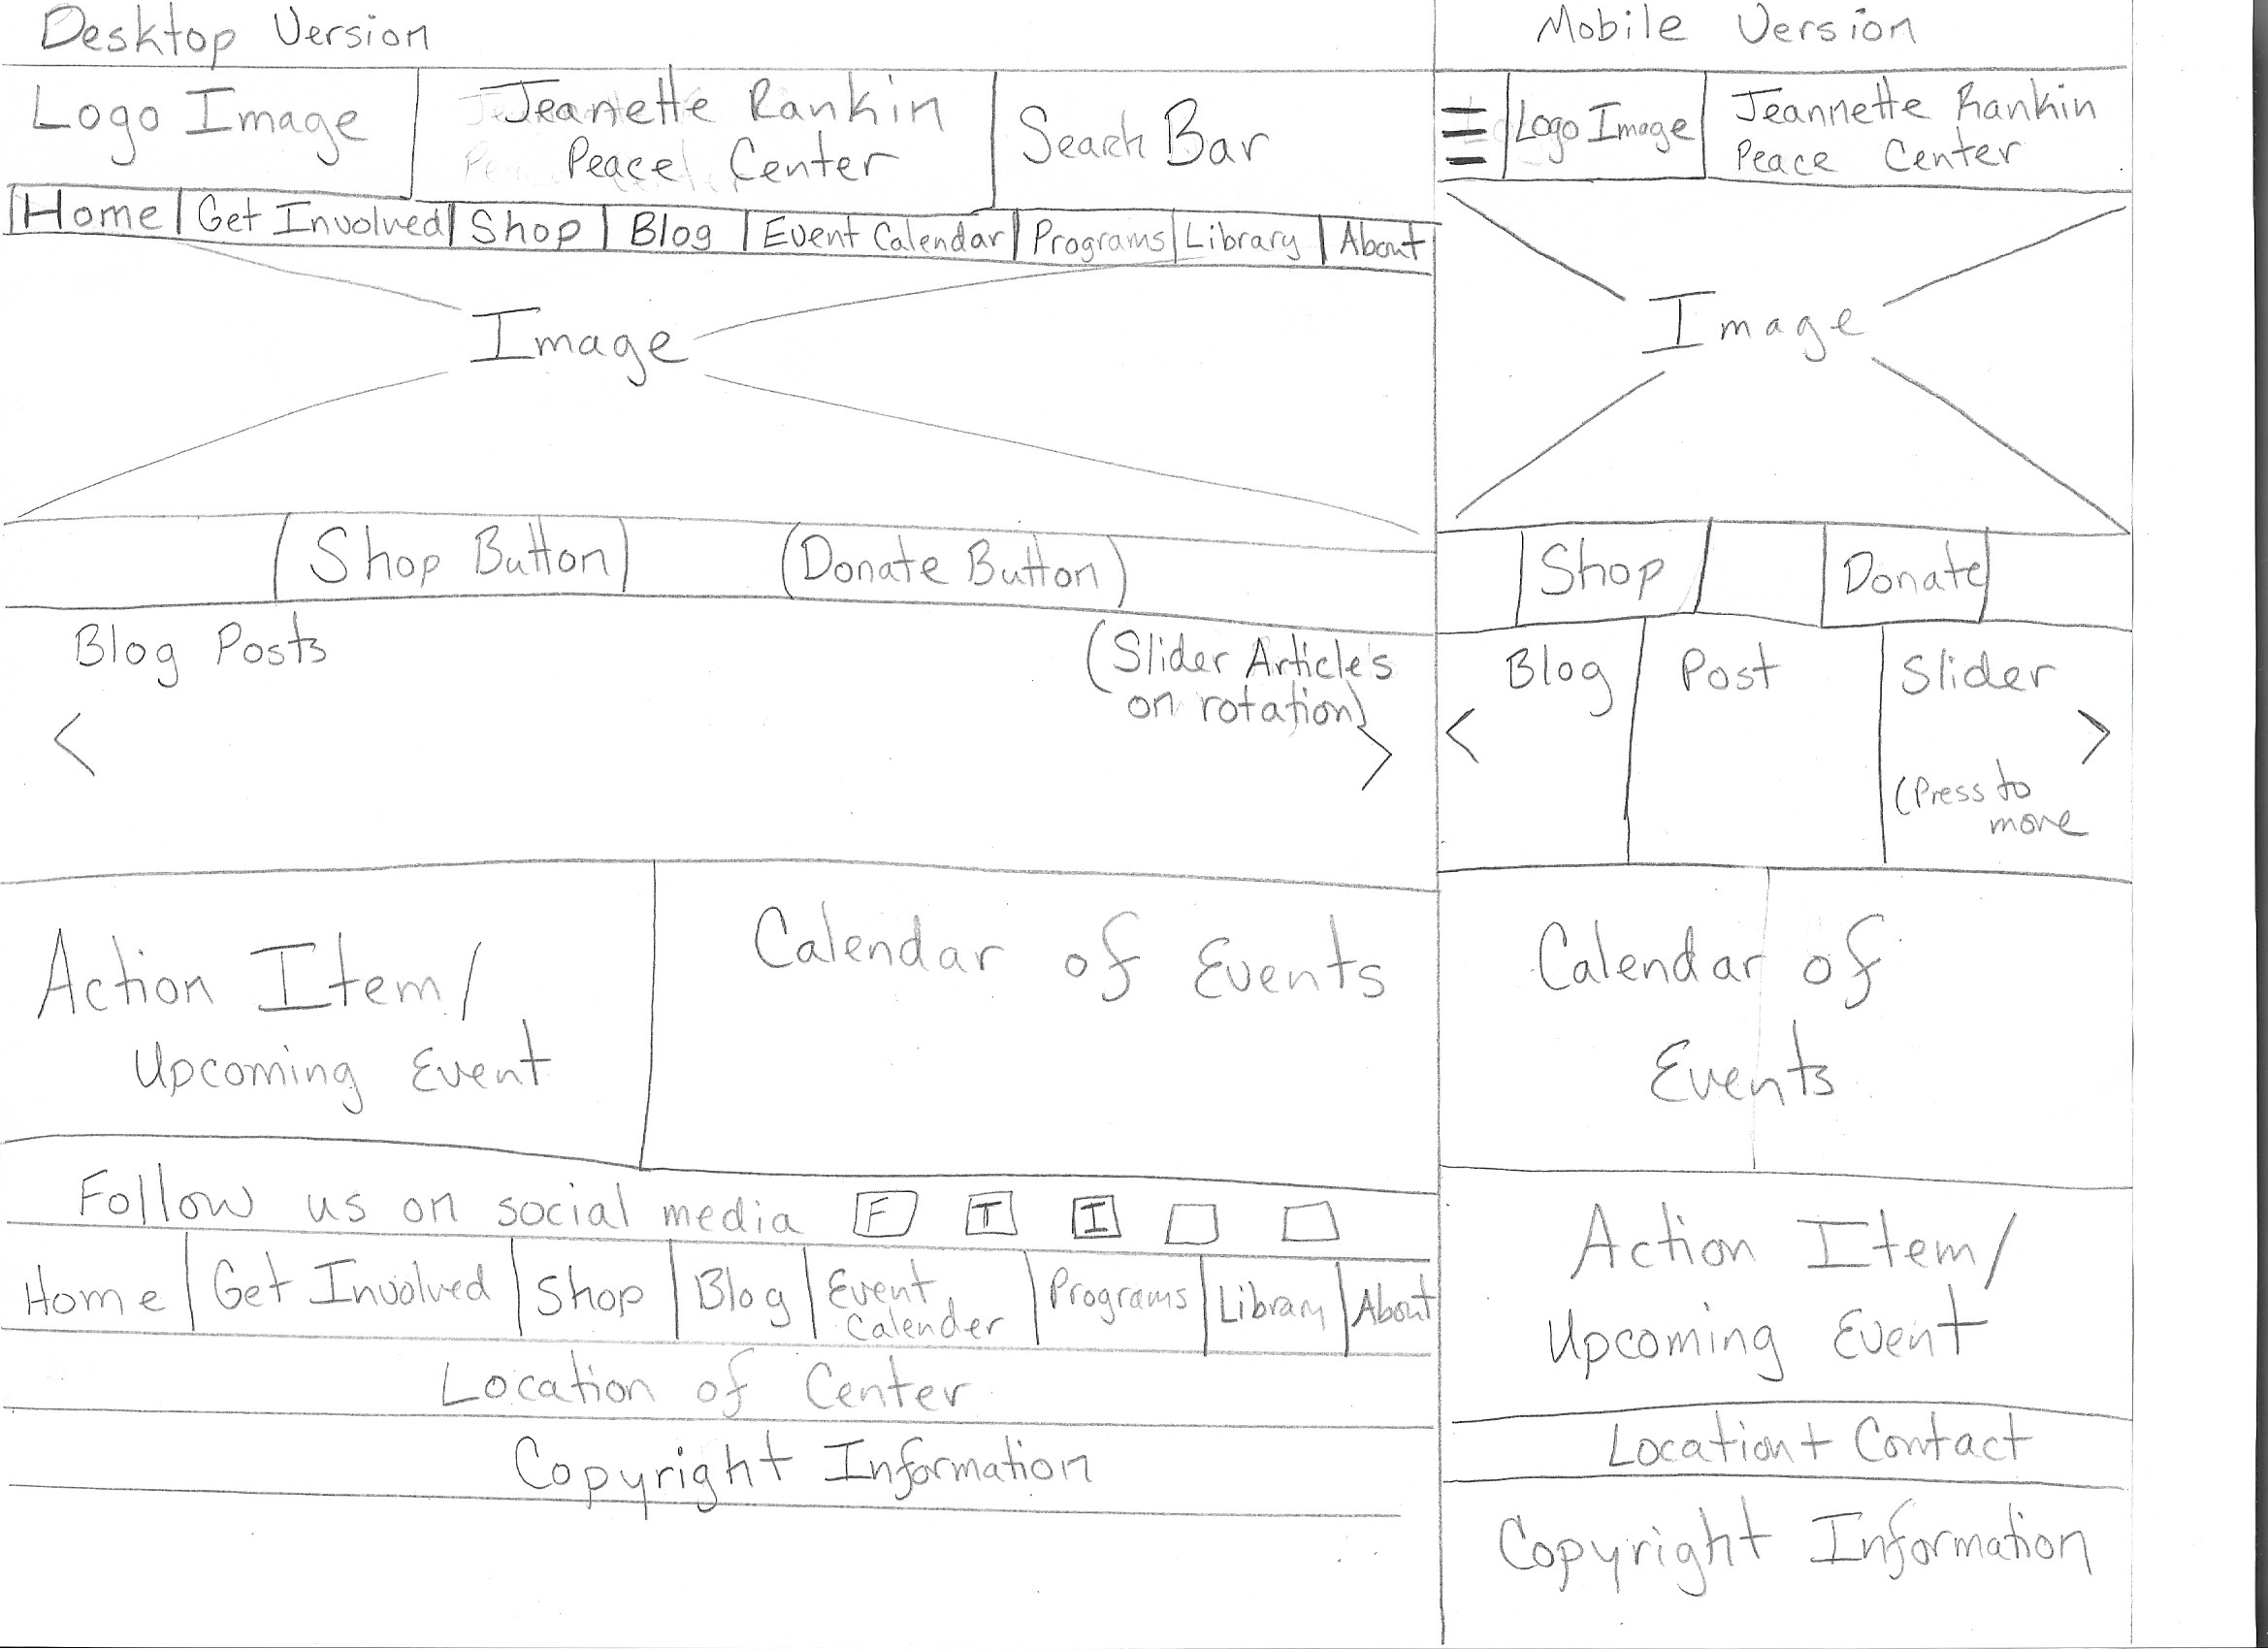 Desktop Version
Logo Image
Jeanette Rankin
Peace Center
Search Bar
Home
Get Involved
Shop
Blog
Event Calendar
Programs
Library
About
Image
(Shop Button)
(Donate Button)
Blog Posts
(Slider Articles
on rotation)
<
>
Action Item/
Upcoming Event
Calendar of Events
Follow us on social media F T I
Home
Get Involved
Shop
Blog
Event
Calender
Programs
Library
About
Location of Center
Copyright Information
Mobile Version
Logo Image
Jeannette Rankin
Peace Center
Image
Shop
Donate
Blog
Post
Slider
<
>
(Press to
move
Calendar of
Events
Action Item/
Upcoming Event
Location + Contact
Copyright Information